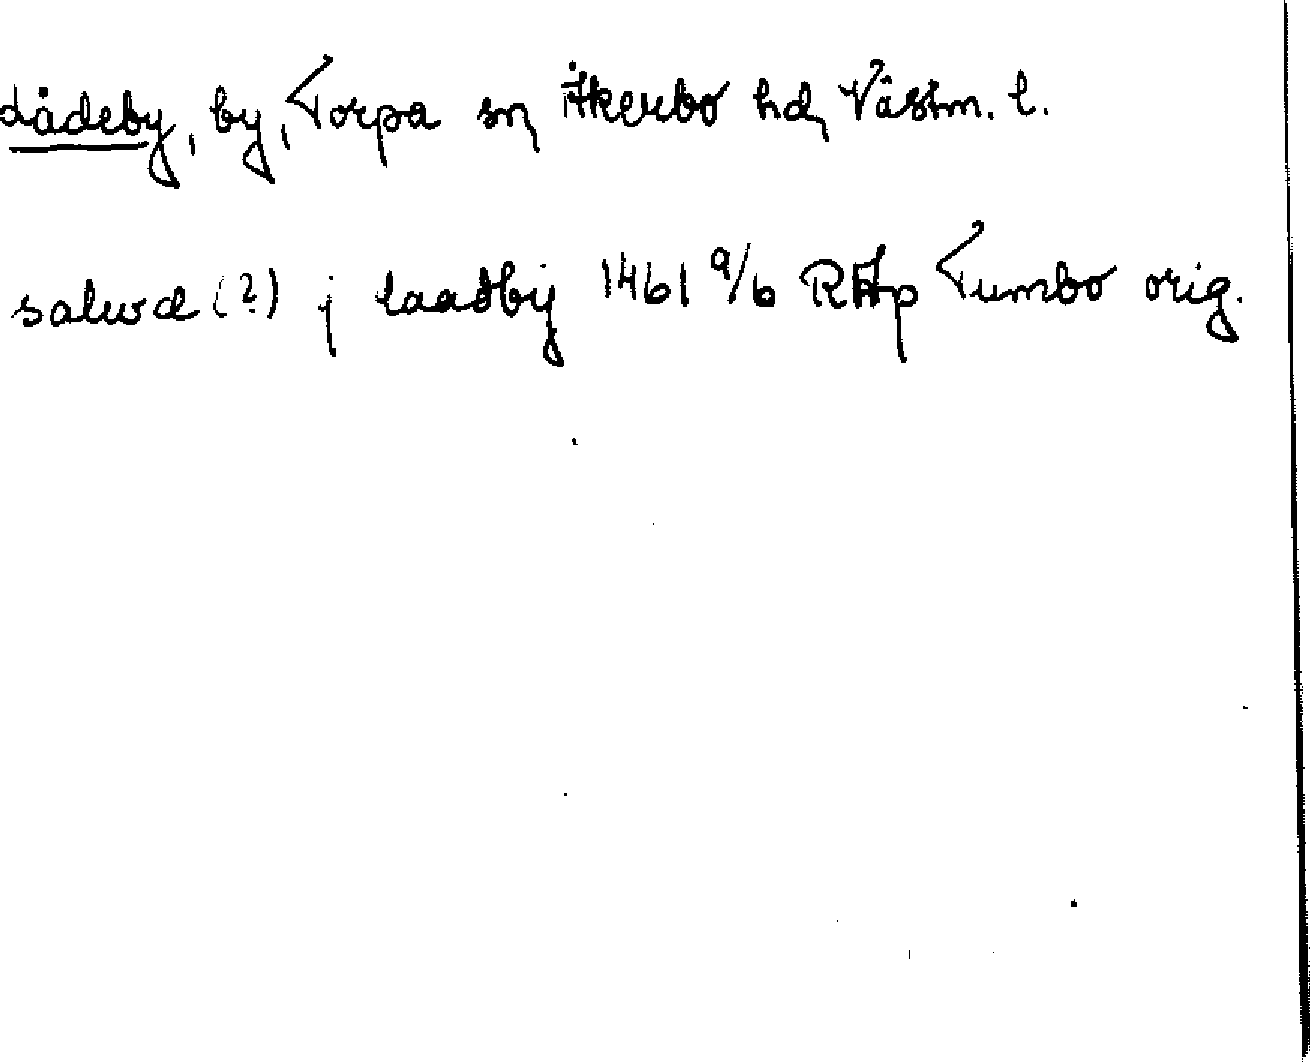 Lådeby, by, Torpa sn, Åkerbo hd, Västm. l.
salwa (?) j laadby 1461 9/6 RAp Tumbo orig.